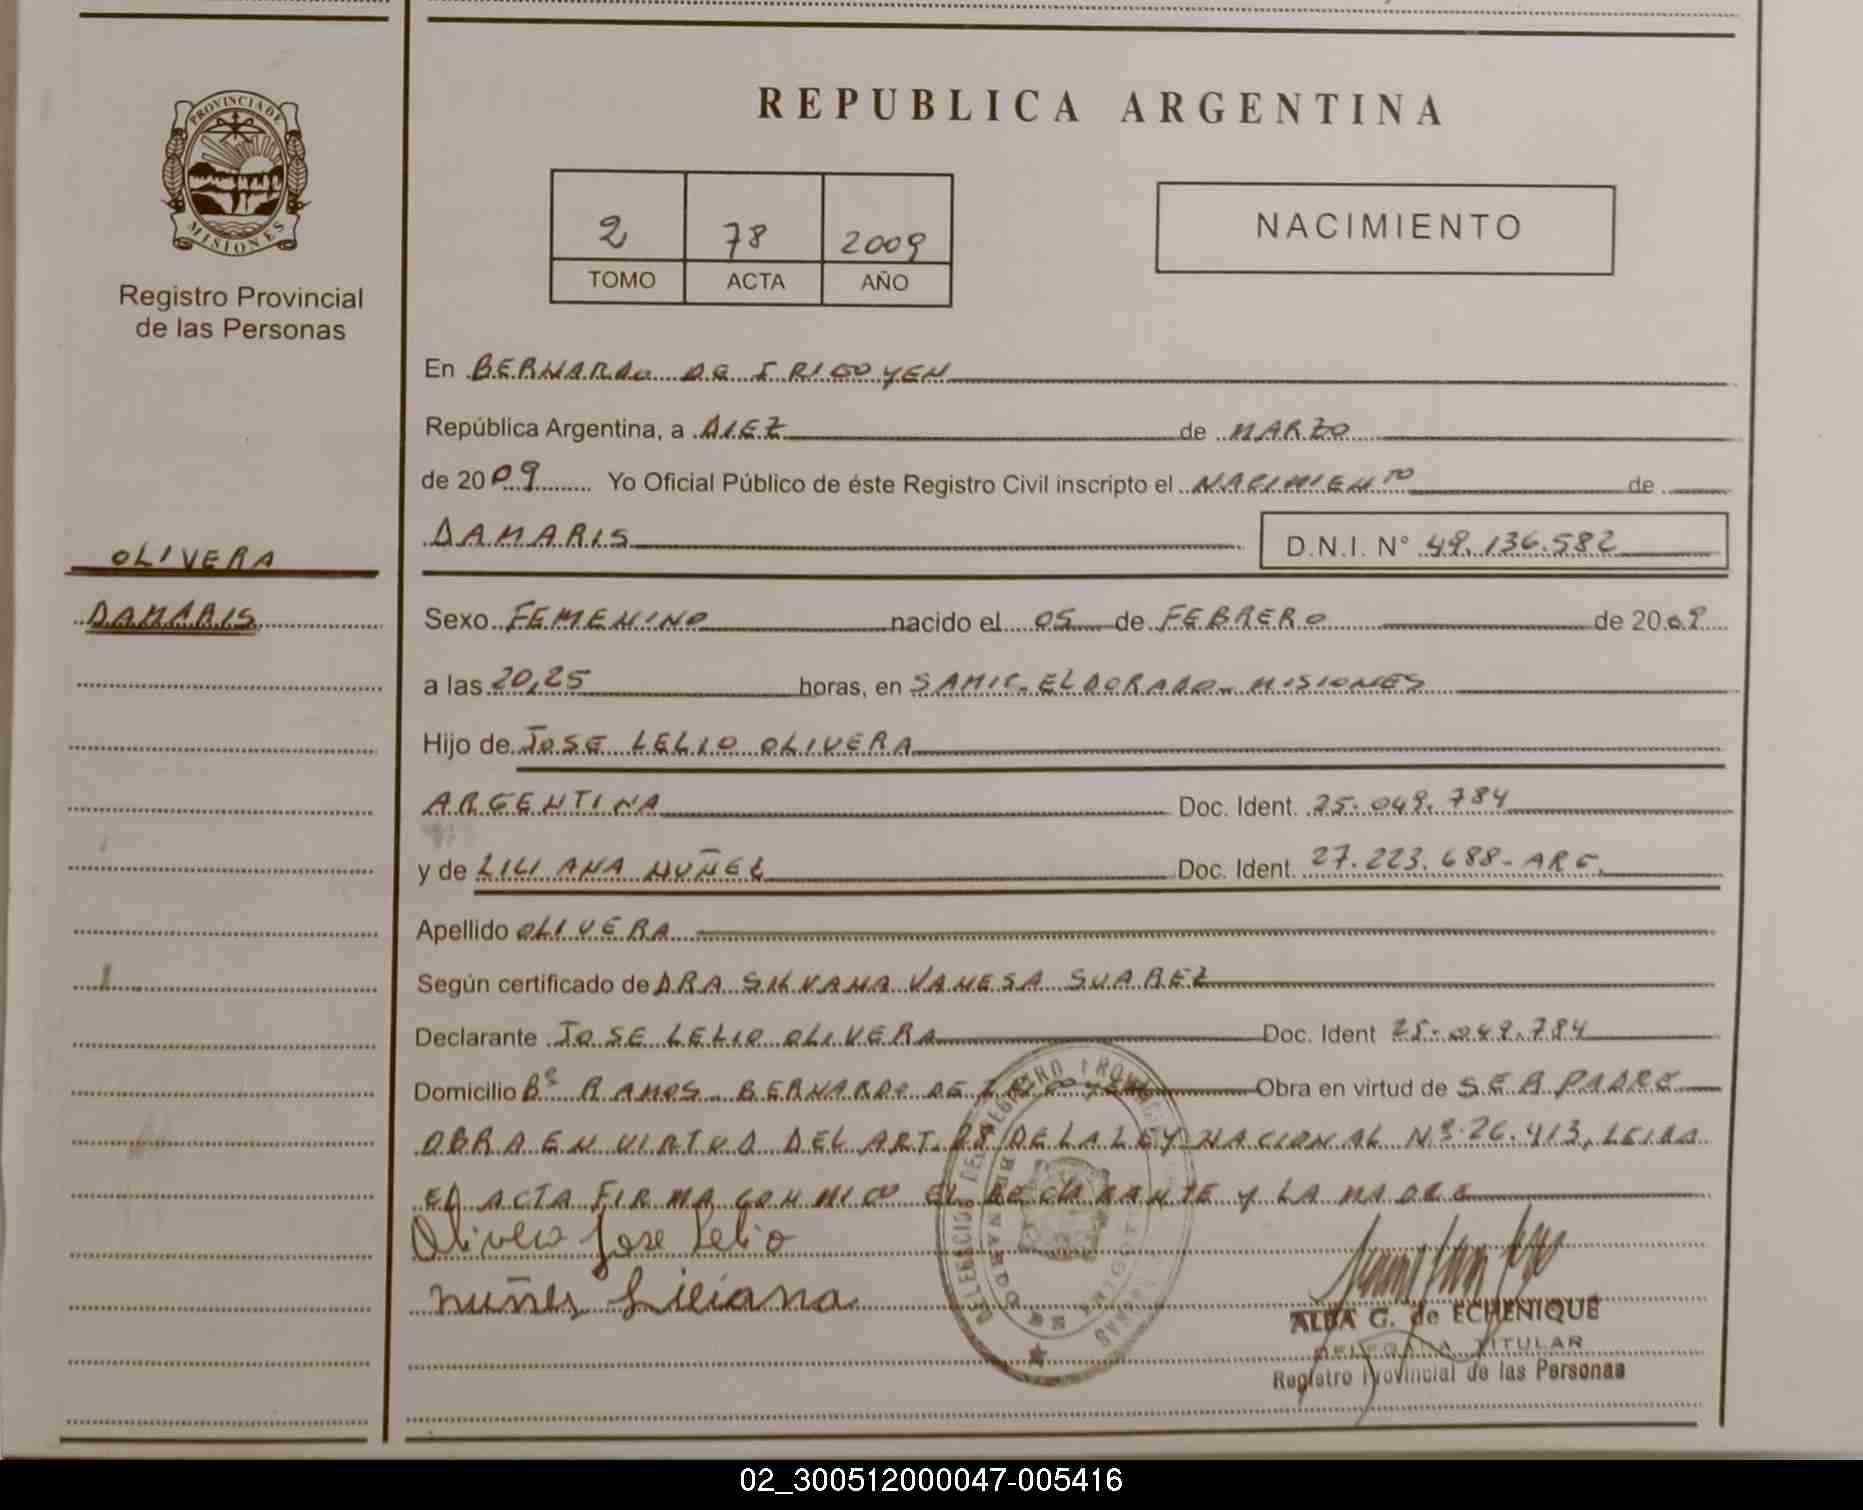 PROVINCIA DE
MISIONES
Registro Provincial
de las Personas
OLIVERA
DAMARIS
REPUBLICA ARGENTINA
2 78 2009
TOMO ACTA AÑO
NACIMIENTO
En BERNARDO DE IRIGOYEN
República Argentina, a DIEZ de MARZO
de 2009 Yo Oficial Público de éste Registro Civil inscripto el NACIMIENTO de
DAMARIS D.N.I. N° 49.136.582
Sexo FEMENINO nacido el 05 de FEBRERO de 2009
a las 20,25 horas, en SAMIC-ELDORADO-MISIONES
Hijo de JOSE LELIO OLIVERA
ARGENTINA Doc. Ident. 25.049.784
y de LILIANA NUÑEZ Doc. Ident. 27.223.688-ARG.
Apellido OLIVERA
Según certificado de DRA SILVANA VANESA SUAREZ
Declarante JOSE LELIO OLIVERA Doc. Ident 25.049.784
Domicilio Bº RAMOS-BERNARDO DE IRIGOYEN Obra en virtud de SER PADRE
OBRA EN VIRTUD DEL ART. DE LA LEY NACIONAL Nº 26.413, LEIDA
EL ACTA FIRMA CONMIGO EL DECLARANTE Y LA MADRE
Olivera Jose Lelio
nuñes Liliana
ALBA G. de ECHENIQUE
DELEGADA TITULAR
Registro Provincial de las Personas
02_300512000047-005416